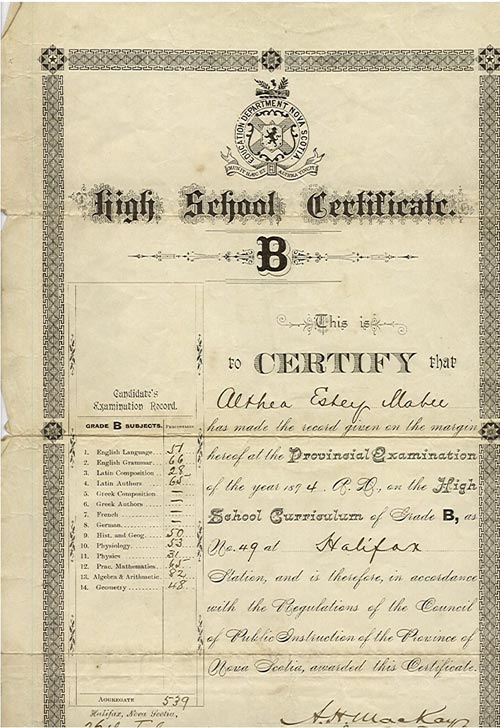 EDUCATION DEPARTMENT NOVA SCOTIA.
MUNIT HAEC ET ALTERA VINCIT
High School Certificate.
B
This is
to CERTIFY that
Althea Estey Mabee
has made the record given on the margin
hereof at the Provincial Examination
of the year 1894. A. D., on the High
School Curriculum of Grade B, as
No. 49 at Halifax
Station, and is therefore, in accordance
with the Regulations of the Council
of Public Instruction of the Province of
Nova Scotia, awarded this Certificate.
A. H. MacKay
Candidate's
Examination Record.
GRADE B SUBJECTS. PERCENTAGES
1. English Language 51
2. English Grammar 66
3. Latin Composition 28
4. Latin Authors 65
5. Greek Composition
6. Greek Authors
7. French
8. German
9. Hist. and Geog. 50
10. Physiology 53
11. Physics 31
12. Prac. Mathematics 65
13. Algebra & Arithmetic 82
14. Geometry 48
AGGREGATE 539
Halifax, Nova Scotia,